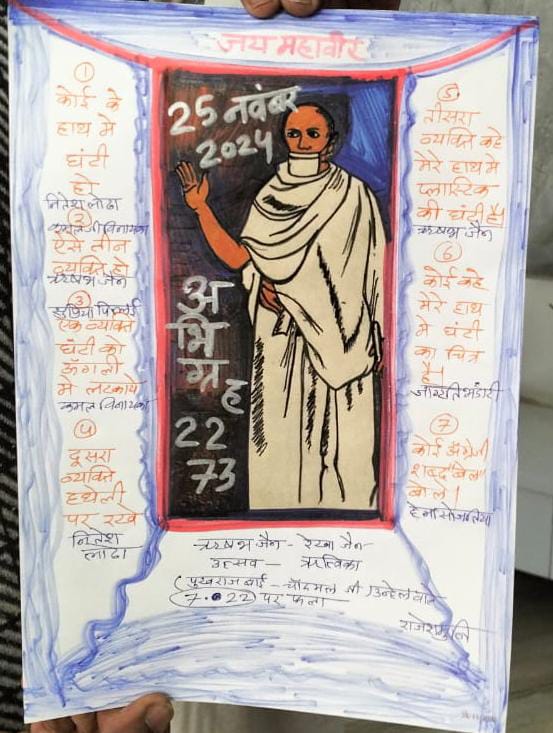 जय महावीर
25 नवंबर
2024
अ
भि
ग्र
ह
22
73
①
कोई के
हाथ मे
घंटी
हो
नितेश लोढा
②
ऐसे तीन
व्यक्ति हो
ऋषभ जैन
③
एक व्यक्ति
घंटी को
ऊँगली
मे लटकाये
कमल विनायका
④
दूसरा
व्यक्ति
हथेली
पर रखे
नितेश
लोढा
⑤
तीसरा
व्यक्ति कहे
मेरे हाथ मे
प्लास्टिक
की घंटी है।
ऋषभ जैन
⑥
कोई कहे
मेरे हाथ
मे घंटी
का चित्र
है।
भंडारी
⑦
कोई अंग्रेजी
शब्द "बेल"
बोले।
हेमा सोजतिया
ऋषभ जैन - रेखा जैन
उत्सव - ऋत्विका
(पुखराज बाई - चाँदमल जी उन्हेल वाले
7.22 पर फला
राजेशमुनि